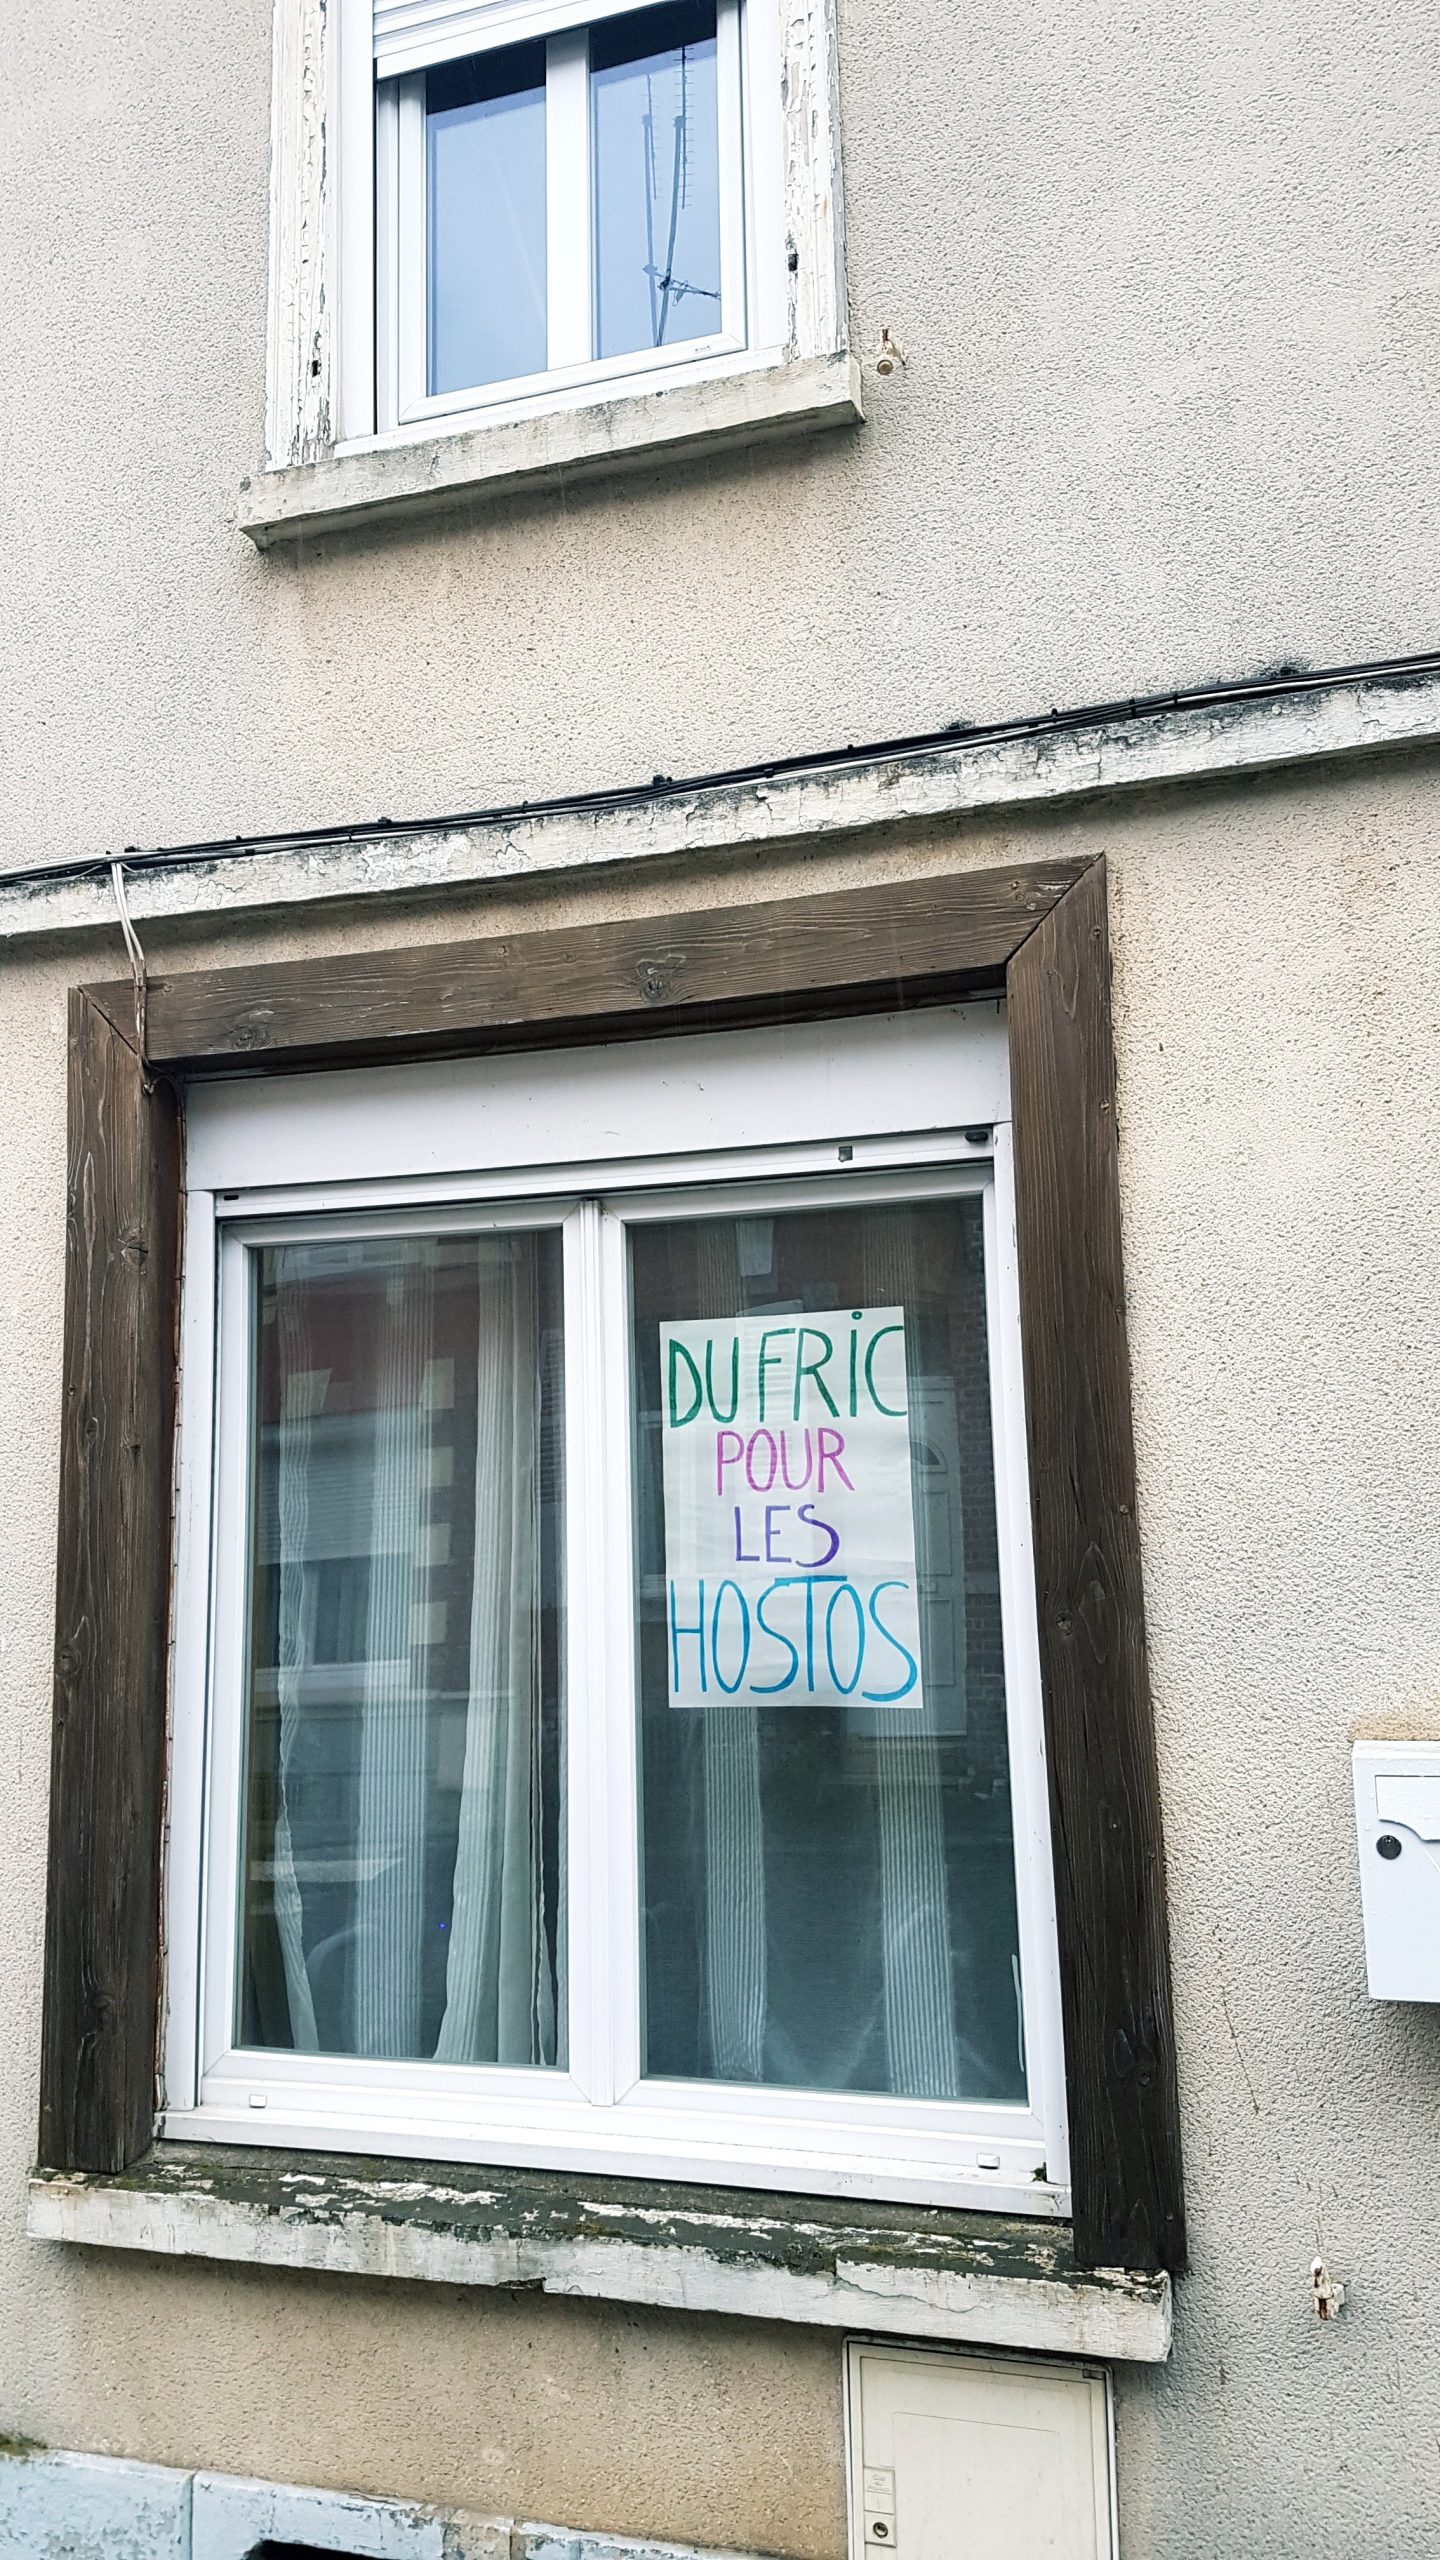 DU FRiC
POUR
LES
HOSTOS